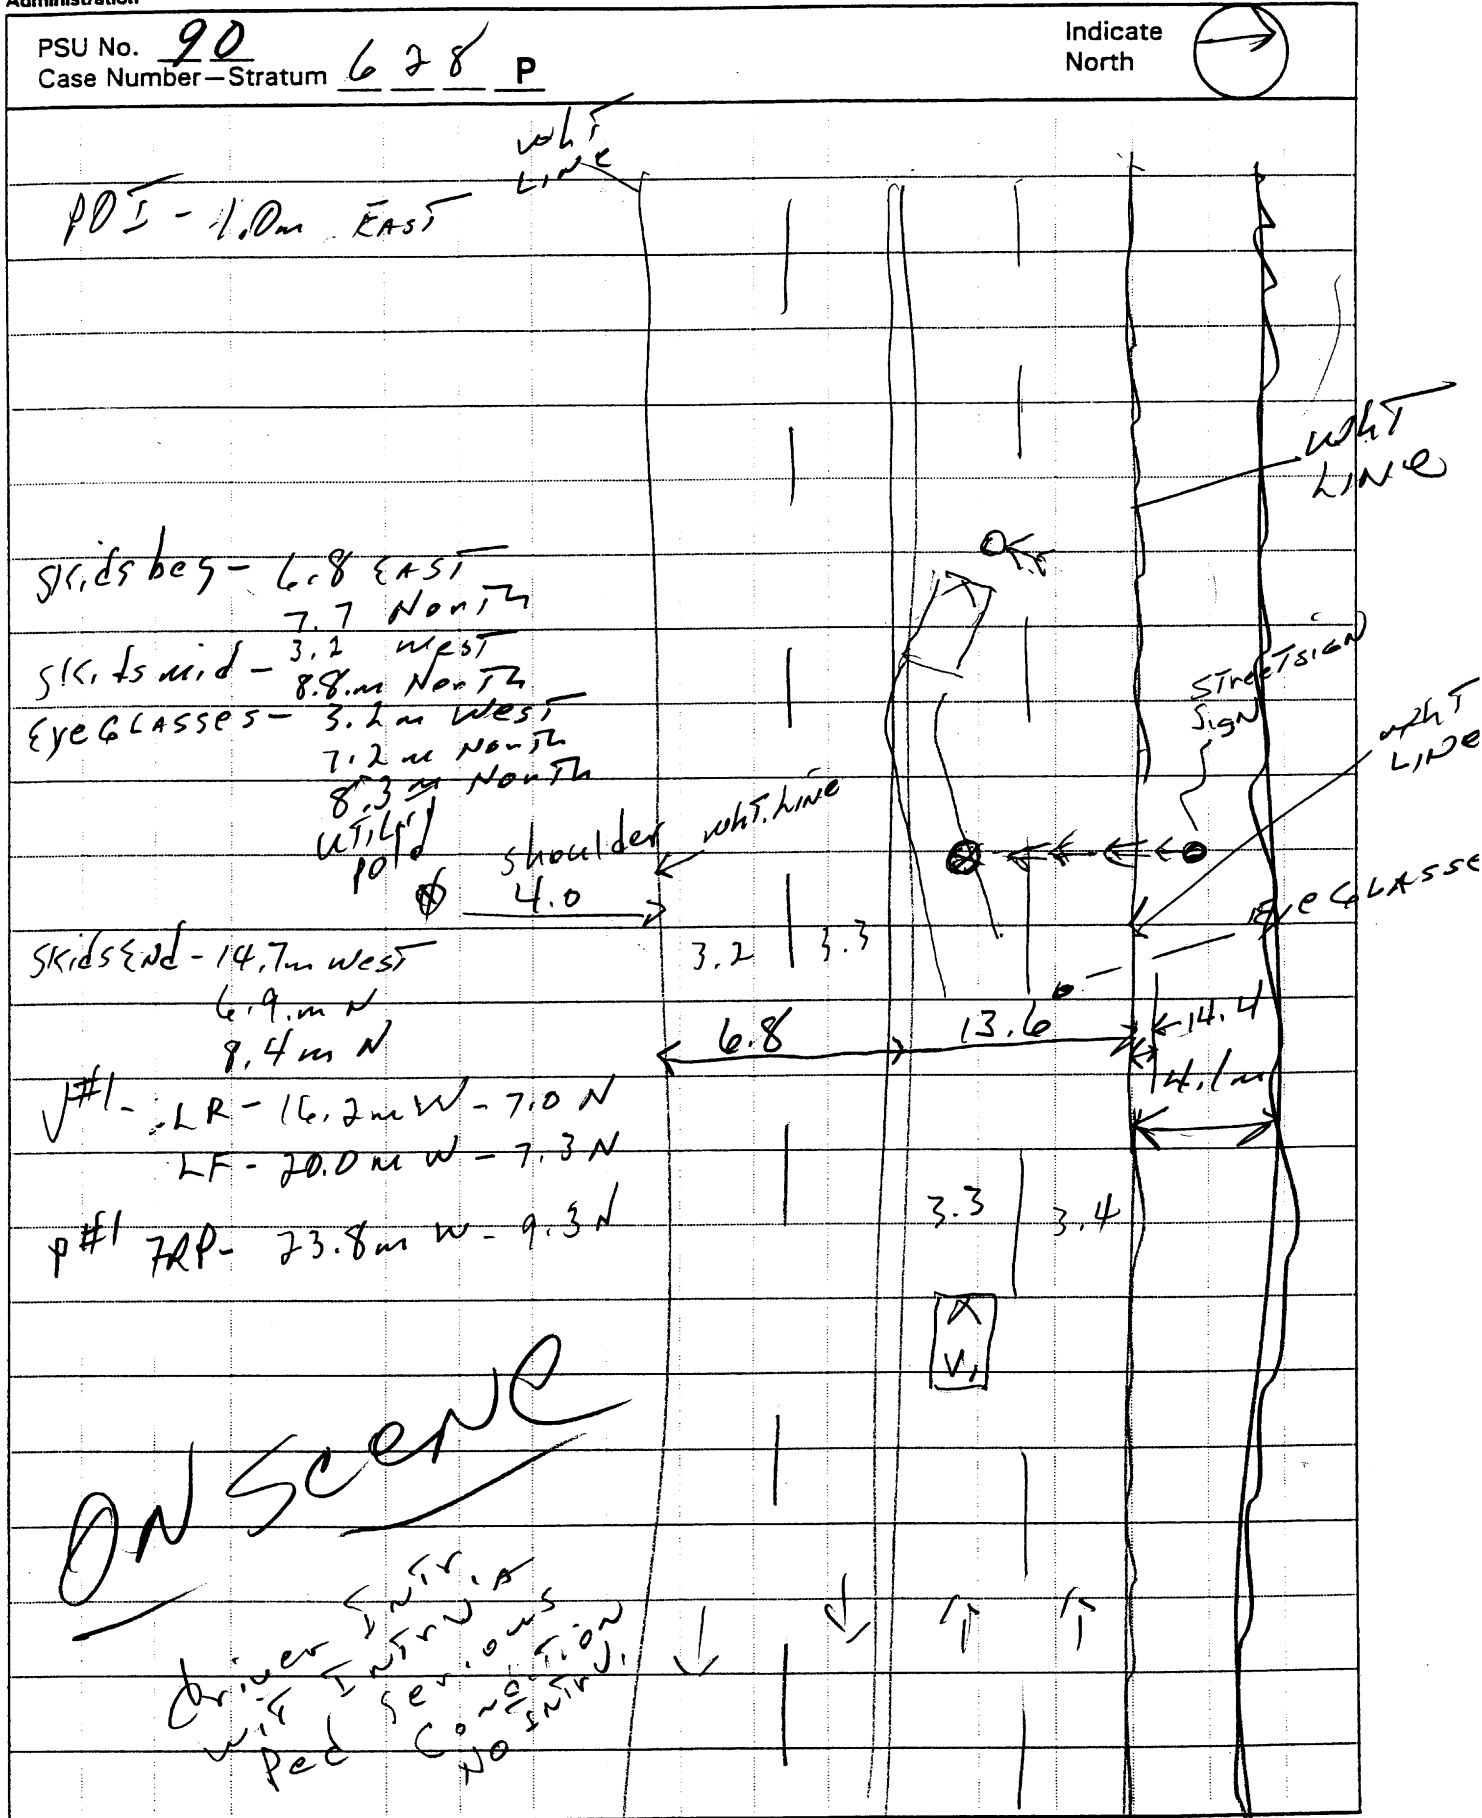 Administration
PSU No. 90
Case Number—Stratum 6 2 8 P
Indicate
North
WhT
LINE
POI - 1.0m EAST
WhT
LINE
Skids beg - 6.8 EAST
7.7 North
Skids mid - 3.2 West
8.8 m North
EyeGLASSES - 3.2 m West
7.2 m North
8.3 m North
STreeTSIGN
SIGN
whT
LINE
UTiLity
pole
shoulder
4.0
whT. LINE
EyeGLASSE
3.2
3.3
Skids End - 14.7m west
6.9 m N
8.4 m N
6.8
13.6
14.4
4.1m
V#1 - LR - 16.2 m W - 7.0 N
LF - 20.0 m W - 7.3 N
P#1 FRP - 23.8 m W - 9.3 N
3.3
3.4
V1
ON Scene
driver INTr.
wiT INTrviA
Ped serious
Condition
NO INTrv.